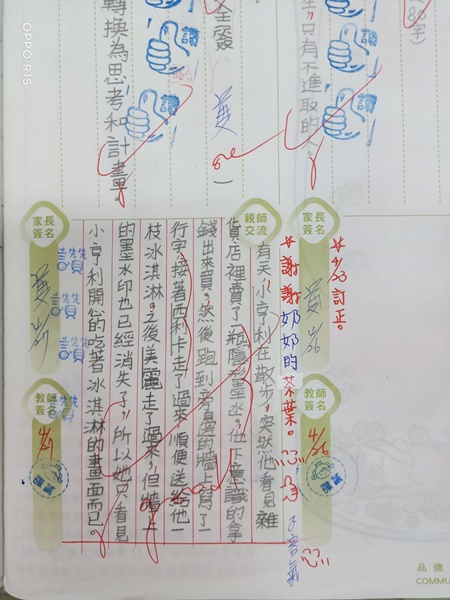 生，只有不進取的人。
讚
讚
讚
轉換為思考和計畫
讚
讚
讚
家長簽名
4/26
教師簽名
4/26
*4/23訂正。
*謝謝奶奶的茶葉。
不客氣
親師交流
有天，小亨利在散步，突然他看見雜
貨店裡賣了一瓶隱形墨水，他下意識的拿
錢出來買，然後跑到旁邊的牆上寫了一
行字，接著西利卡走了過來，順便送給他一
枝冰淇淋，之後美麗走了過來，但牆上
的墨水印也已經消失了，所以她只看見
小亨利開心的吃著冰淇淋的畫面而已。
讚
讚
讚
讚
家長簽名
教師簽名
4/29
品德
COMMU
OPPO R15